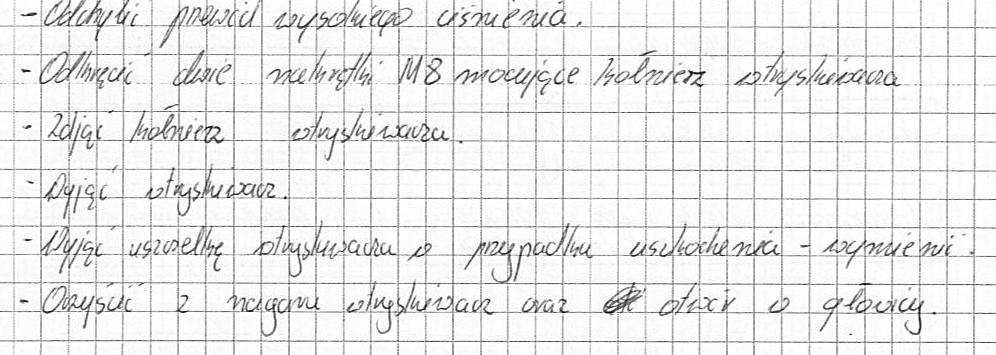 - Odchylić przewód wysokiego ciśnienia.
- Odkręcić dwie nakrętki M8 mocujące kołnierz wtryskiwacza
- Zdjąć kołnierz wtryskiwacza.
- Wyjąć wtryskiwacz.
- Wyjąć uszczelkę wtryskiwacza w przypadku uszkodzenia - wymienić.
- Oczyścić z nagaru wtryskiwacz oraz otwór w głowicy.